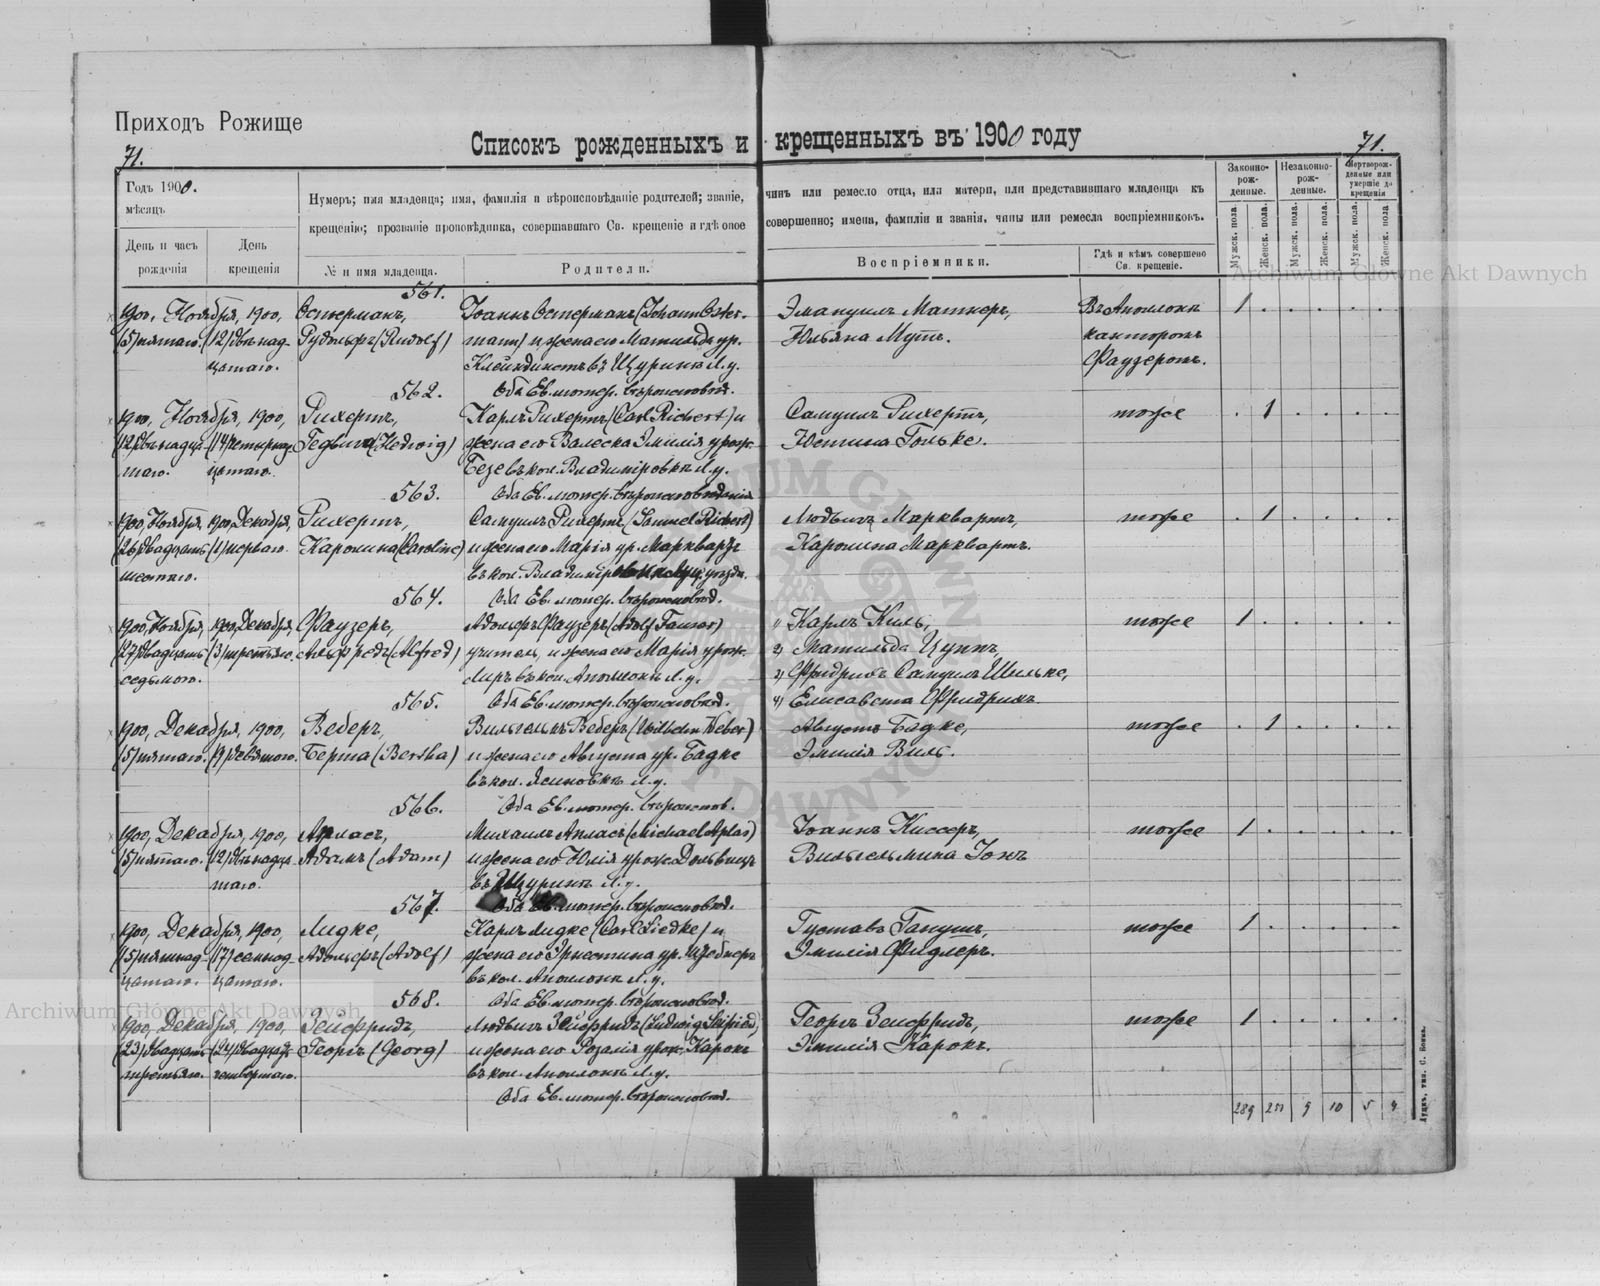 Приходъ Рожище
71.
Списокъ рожденныхъ и крещенныхъ въ 1900 году
71.
Годъ 1900.
мѣсяцъ
День и часъ рожденія
День крещенія
Нумеръ; имя младенца; имя, фамилія и вѣроисповѣданіе родителей; званіе,
крещенію; прозваніе проповѣдника, совершавшаго Св. крещеніе и гдѣ оное
№ и имя младенца.
Родители.
чинъ или ремесло отца, или матери, или представившаго младенца къ
совершенно; имена, фамиліи и званія, чины или ремесла воспріемниковъ.
Воспріемники.
Гдѣ и кѣмъ совершено Св. крещеніе.
Законно-рож-денные.
Незаконно-рож-денные.
Мертворож-денные или умершіе до крещенія
Мужск. пола.
Женск. пола.
Мужск. пола.
Женск. пола.
Мужск. пола.
Женск. пола
Archiwum Główne Akt Dawnych
561.
1900, Ноября, 1900, Остерманъ, Іоаннъ Остерманъ (Johann Oster- Эмануилъ Маткеръ, Въ Аполлонк 1
(5) пятаго. (12) двѣнад- Рудольфъ (Rudolf) mann) и жена его Матильда ур. Юльяна Мутъ. канторомъ
цатаго. Клейндинстъ въ Щуринѣ Л.у. Фаузеромъ.
562. Оба Ев. лютер. вѣроисповѣд.
1900, Ноября, 1900, Рихертъ, Карлъ Рихертъ (Carl Richert) и Самуилъ Рихертъ, тоже 1
(12) двѣнадца- (14) четырнад- Гедвига (Hedwig) жена его Валеска Эмилія урож. Юстина Гольке.
таго. цатаго. Безе въ кол. Владиміровкѣ Л.у.
563. Оба Ев. лютер. вѣроисповѣданія
1900, Ноября, 1900, Декабря, Рихертъ, Самуилъ Рихертъ (Samuel Richert) Людвигъ Марквартъ, тоже 1
(26) двадцать (1) перваго. Каролина (Caroline) и жена его Марія ур. Марквартъ Каролина Марквартъ.
шестаго. въ кол. Владиміровкѣ Луц. уѣзда.
564. Оба Ев. лютер. вѣроисповѣд.
1900, Ноября, 1900, Декабря, Фаузеръ, Адольфъ Фаузеръ (Adolf Fauser) 1) Карлъ Киль, тоже 1
(27) двадцать (3) третьяго. Альфредъ (Alfred) учитель, и жена его Марія урож. 2) Матильда Цуппъ,
седьмого. Лиръ въ кол. Аполлонкѣ Л.у. 3) Фридрихъ Самуилъ Шильке,
565. Оба Ев. лютер. вѣроисповѣд. 4) Елисавета Фридрихъ.
1900, Декабря, 1900, Веберъ, Вильгельмъ Веберъ (Wilhelm Weber) Августъ Бадке, тоже 1
(5) пятаго. (9) девятаго. Берта (Bertha) и жена его Августа ур. Бадке Эмилія Виль.
въ кол. Ясиновкѣ Л.у.
566. Оба Ев. лютер. вѣроисповѣд.
1900, Декабря, 1900, Апласъ, Михаилъ Апласъ (Michael Aplas) Іоаннъ Киссеръ, тоже 1
(5) пятаго. (12) двѣнадца- Адамъ (Adam) и жена его Юлія урож. Вильгельмина Іонъ
таго. въ Щуринѣ Л.у.
567. Оба Ев. лютер. вѣроисповѣд.
1900, Декабря, 1900, Лидке, Карлъ Лидке (Carl Liedke) и Густавъ Ганушъ, тоже 1
(15) пятнад- (17) семнад- Адольфъ (Adolf) жена его Эрнестина ур. Эмилія Фидлеръ.
цатаго. цатаго. въ кол. Аполлонкѣ Л.у.
568. Оба Ев. лютер. вѣроисповѣд.
Archiwum Główne Akt Dawnych
1900, Декабря, 1900, Зейфридъ, Людвигъ Зейфридъ (Ludwig Seifried) Георгъ Зейфридъ, тоже 1
(23) двадцать (24) двадцать Георгъ (Georg) и жена его Розалія урож. Карокъ Эмилія Карокъ.
третьяго. четвертаго. въ кол. Аполлонкѣ Л.у.
Оба Ев. лютер. вѣроисповѣд.
289 251 9 10 5 4
Луцкъ, тип. С. Бонка.